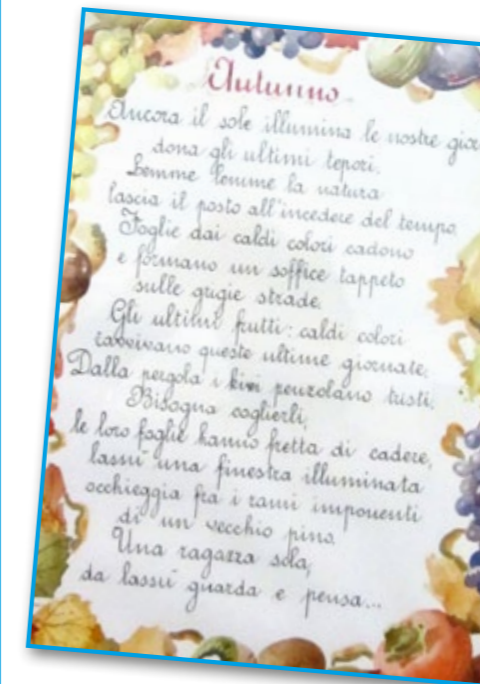 Autunno
Ancora il sole illumina le nostre gior
dona gli ultimi tepori.
Lemme lemme la natura
lascia il posto all'incedere del tempo.
Foglie dai caldi colori cadono
e formano un soffice tappeto
sulle grigie strade.
Gli ultimi frutti: caldi colori
ravvivano queste ultime giornate.
Dalla pergola i kiwi penzolano tristi.
Bisogna coglierli,
le loro foglie hanno fretta di cadere,
lassù una finestra illuminata
occhieggia fra i rami imponenti
di un vecchio pino.
Una ragazza sola,
da lassù guarda e pensa...